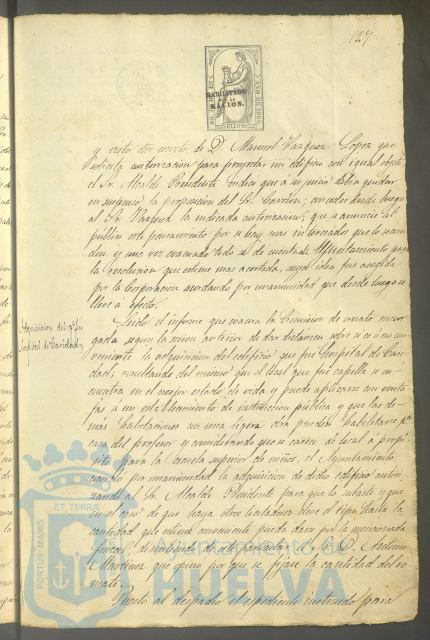 127
HABILITADO
POR LA
NACION.
y visto otro escrito de D. Manuel Vazquez Lopez que
solicita autorizacion para proyectar un edificio con igual objeto,
el Sr. Alcalde Presidente indicó que á su juicio debia quedar
en suspenso la proposicion del Sr. Carrion, concederse desde luego
al Sr. Vazquez la indicada autorizacion, que se anuncie al
público este pensamiento por si hay mas interesados que lo secun-
den y una vez examinado todo se dé cuenta al Ayuntamiento para
la resolucion que estime mas acertada, cuya idea fue acogida
por la Corporacion acordando por unanimidad que desde luego se
lleve á efecto.
Adquisicion del
Hospital de Caridad
Leido el informe que evacua la Comision de ornato encar-
gada segun la sesion anterior de dar dictamen sobre si es ó no con-
veniente la adquisicion del edificio que fué Hospital de Cari-
dad, resultando del mismo que el local que fué capilla se en-
cuentra en el mejor estado de vida y puede aplicarse con venta-
jas á un establecimiento de instruccion pública y que las de-
mas habitaciones con una ligera obra pueden habilitarse pa
casa del profesor y considerando que se carece de local á propó-
sito para la Escuela superior de niños, el Ayuntamiento
acordó por unanimidad la adquisicion de dicho edificio autori-
zando al Sr. Alcalde Presidente para que lo subaste y que
en el caso de que haya otros licitadores eleve el tipo hasta la
cantidad que estime conveniente pueda darse por la mencionada
finca, disintiendo de este particular el Sr. D. Antonio
Martinez que opinó por que se fijase la cantidad del re-
mate.
Puesto al despacho el espediente instruido para
PORTUS MARIS
ET TERRÆ
Ayuntamiento de
HUELVA